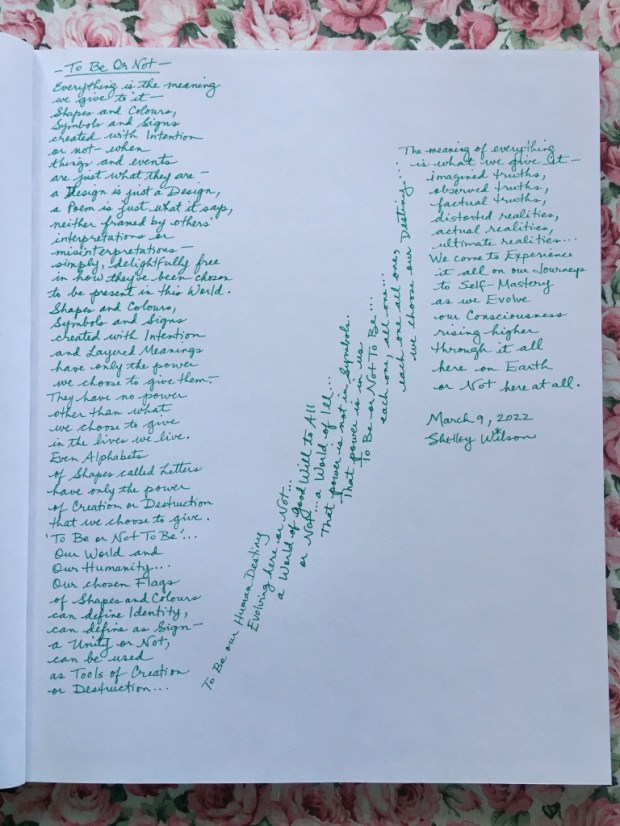 — To Be Or Not —
Everything is the meaning
we give to it —
Shapes and Colours,
Symbols and Signs
created with Intention
or not - when
things and events
are just what they are —
a Design is just a Design,
a Poem is just what it says,
neither framed by others'
interpretations or
misinterpretations —
simply, delightfully free
in how they've been chosen
to be present in this World.
Shapes and Colours,
Symbols and Signs
created with Intention
and Layered Meanings
have only the power
we choose to give them —
They have no power
other than what
we choose to give
in the lives we live.
Even Alphabets
of Shapes called Letters
have only the power
of Creation or Destruction
that we choose to give.
'To Be or Not To Be'...
Our World and
Our Humanity...
Our chosen Flags
of Shapes and Colours
can define Identity,
can define as Sign —
a Unity or Not,
can be used
as Tools of Creation
or Destruction...
To Be our Human Destiny
Evolving here or Not...
a World of Good Will to All
or Not... a World of Ill...
That power is not in Symbols..
That power is in us
To Be or Not To Be...
each one, all one...
each one all one,
we choose our Destiny...
The meaning of everything
is what we give it —
imagined truths,
observed truths,
factual truths,
distorted realities,
actual realities,
ultimate realities...
We come to Experience
it all on our Journeys
to Self-Mastery
as we Evolve
our Consciousness
rising higher
through it all
here on Earth
or Not here at all.
March 9, 2022
Shelley Wilson